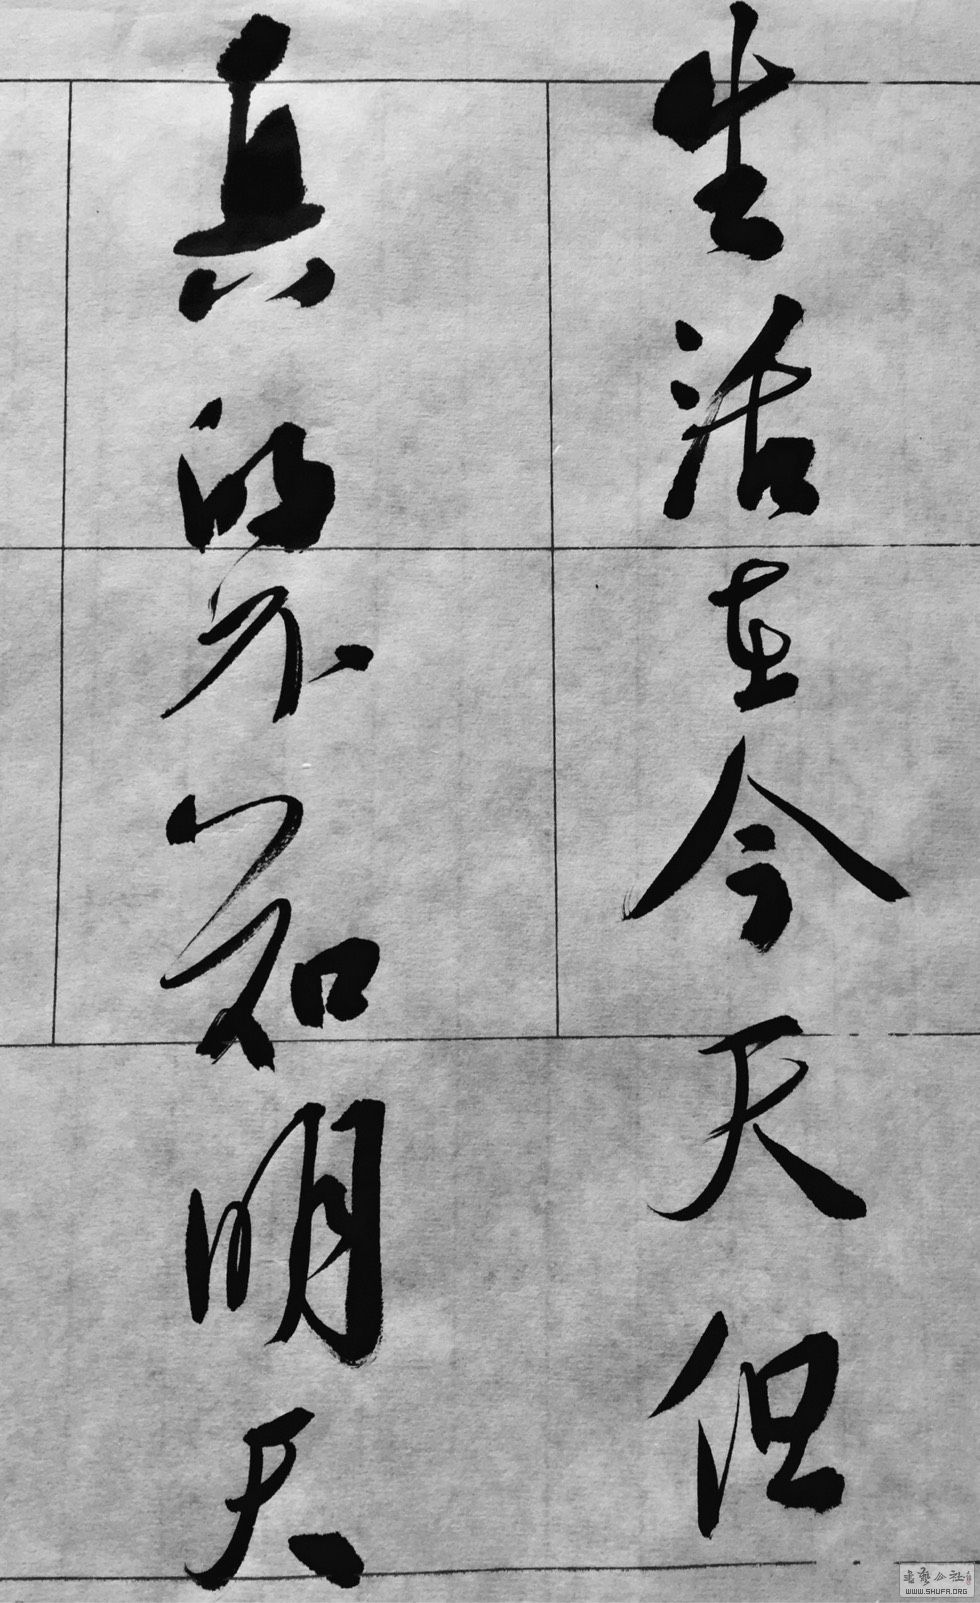 生活在今天但
真的不知明天
書藝公社
WWW.SHUFA.ORG